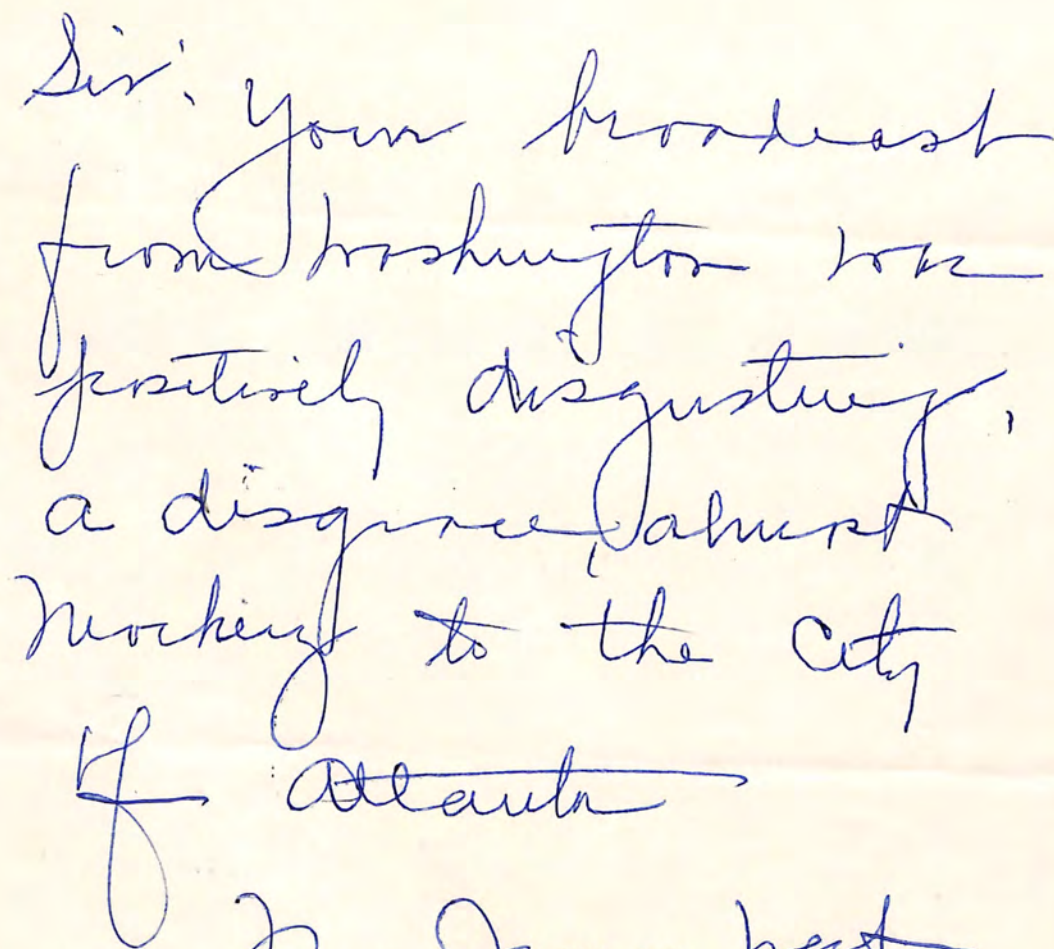 Sir: Your broadcast
from Washington was
positively disgusting,
a disgrace, almost
Mocking to the City
of Atlanta